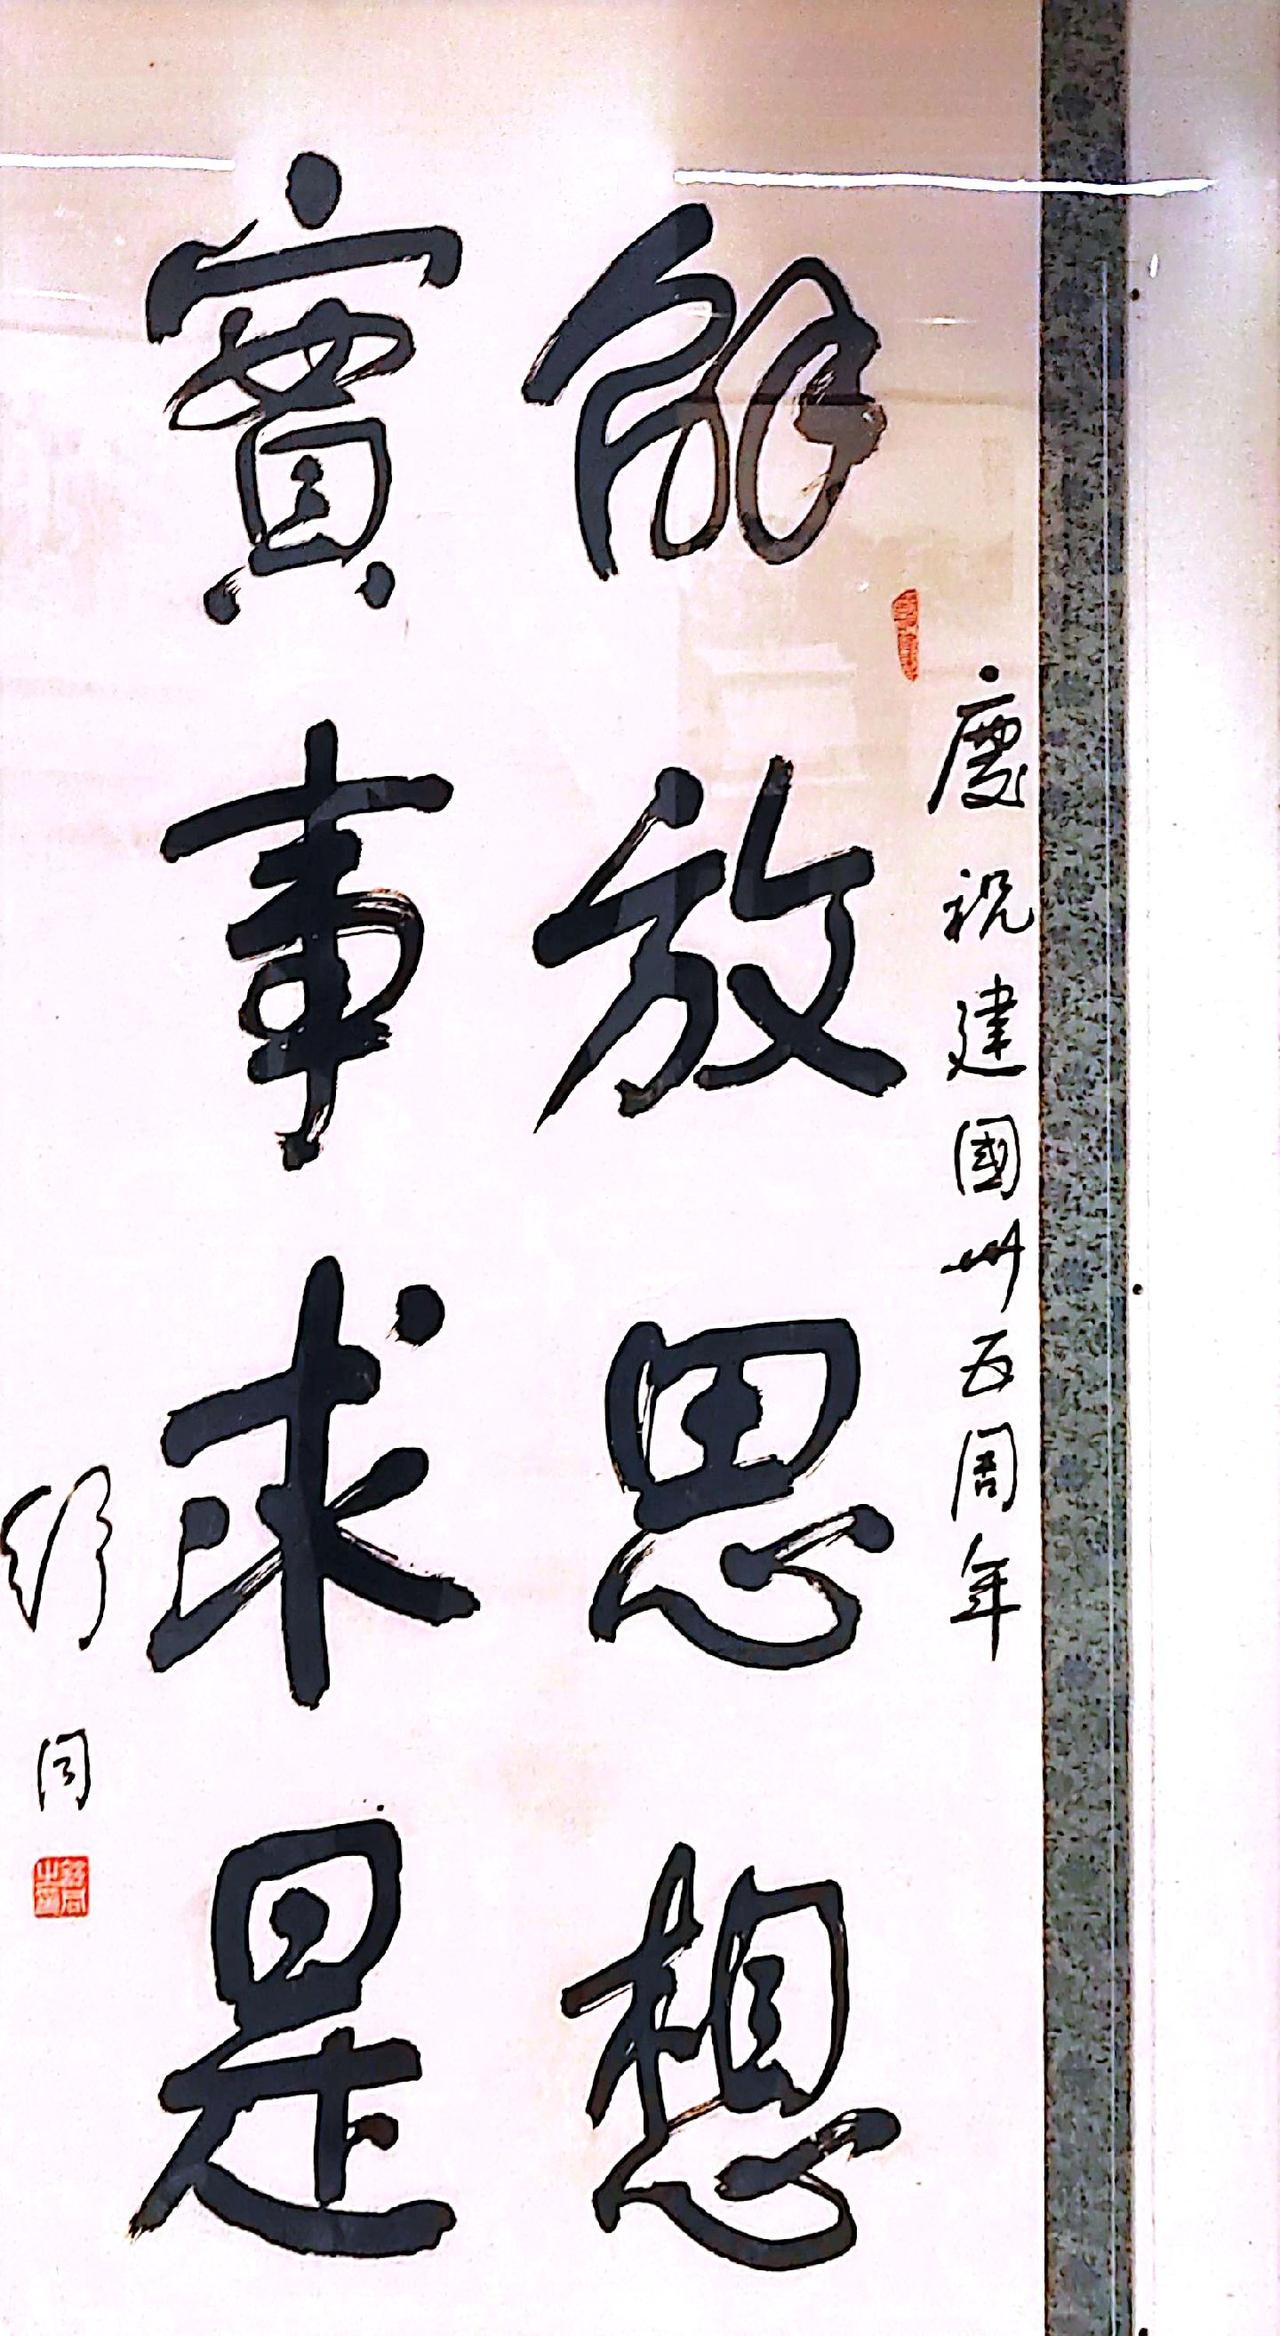 慶祝建國卅五周年
解放思想
實事求是
舒同